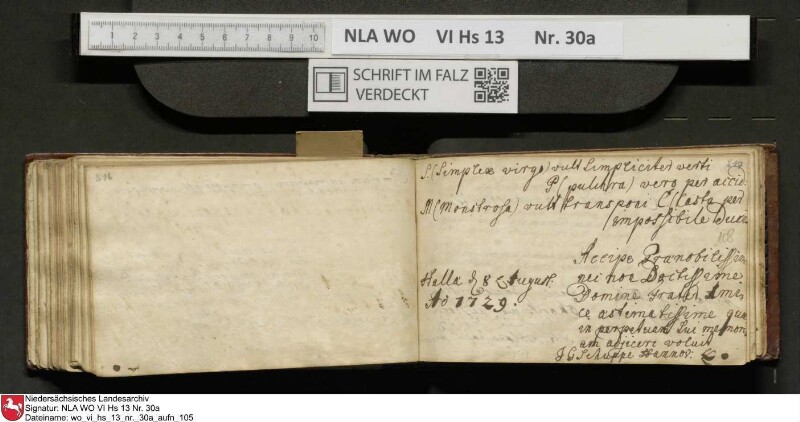 1 2 3 4 5 6 7 8 9 10
NLA WO VI Hs 13 Nr. 30a
SCHRIFT IM FALZ
VERDECKT
S (Simplex virgo) vult Simpliciter verti
P (pulchra) vero per accid
M (Monstrosa) vult transponi C (Casta per
impossibile Duci
168
Halla d 8 August.
Ao 1729.
Accipe Prænobilissime
Doctissime
Domine Frater Ami
ce æstumatissime quæ
in perpetuam Sui memori
am adjicere voluit
J G Schuppe Hannov.
Niedersächsisches Landesarchiv
Signatur: NLA WO VI Hs 13 Nr. 30a
Dateiname: wo_vi_hs_13_nr._30a_aufn_105